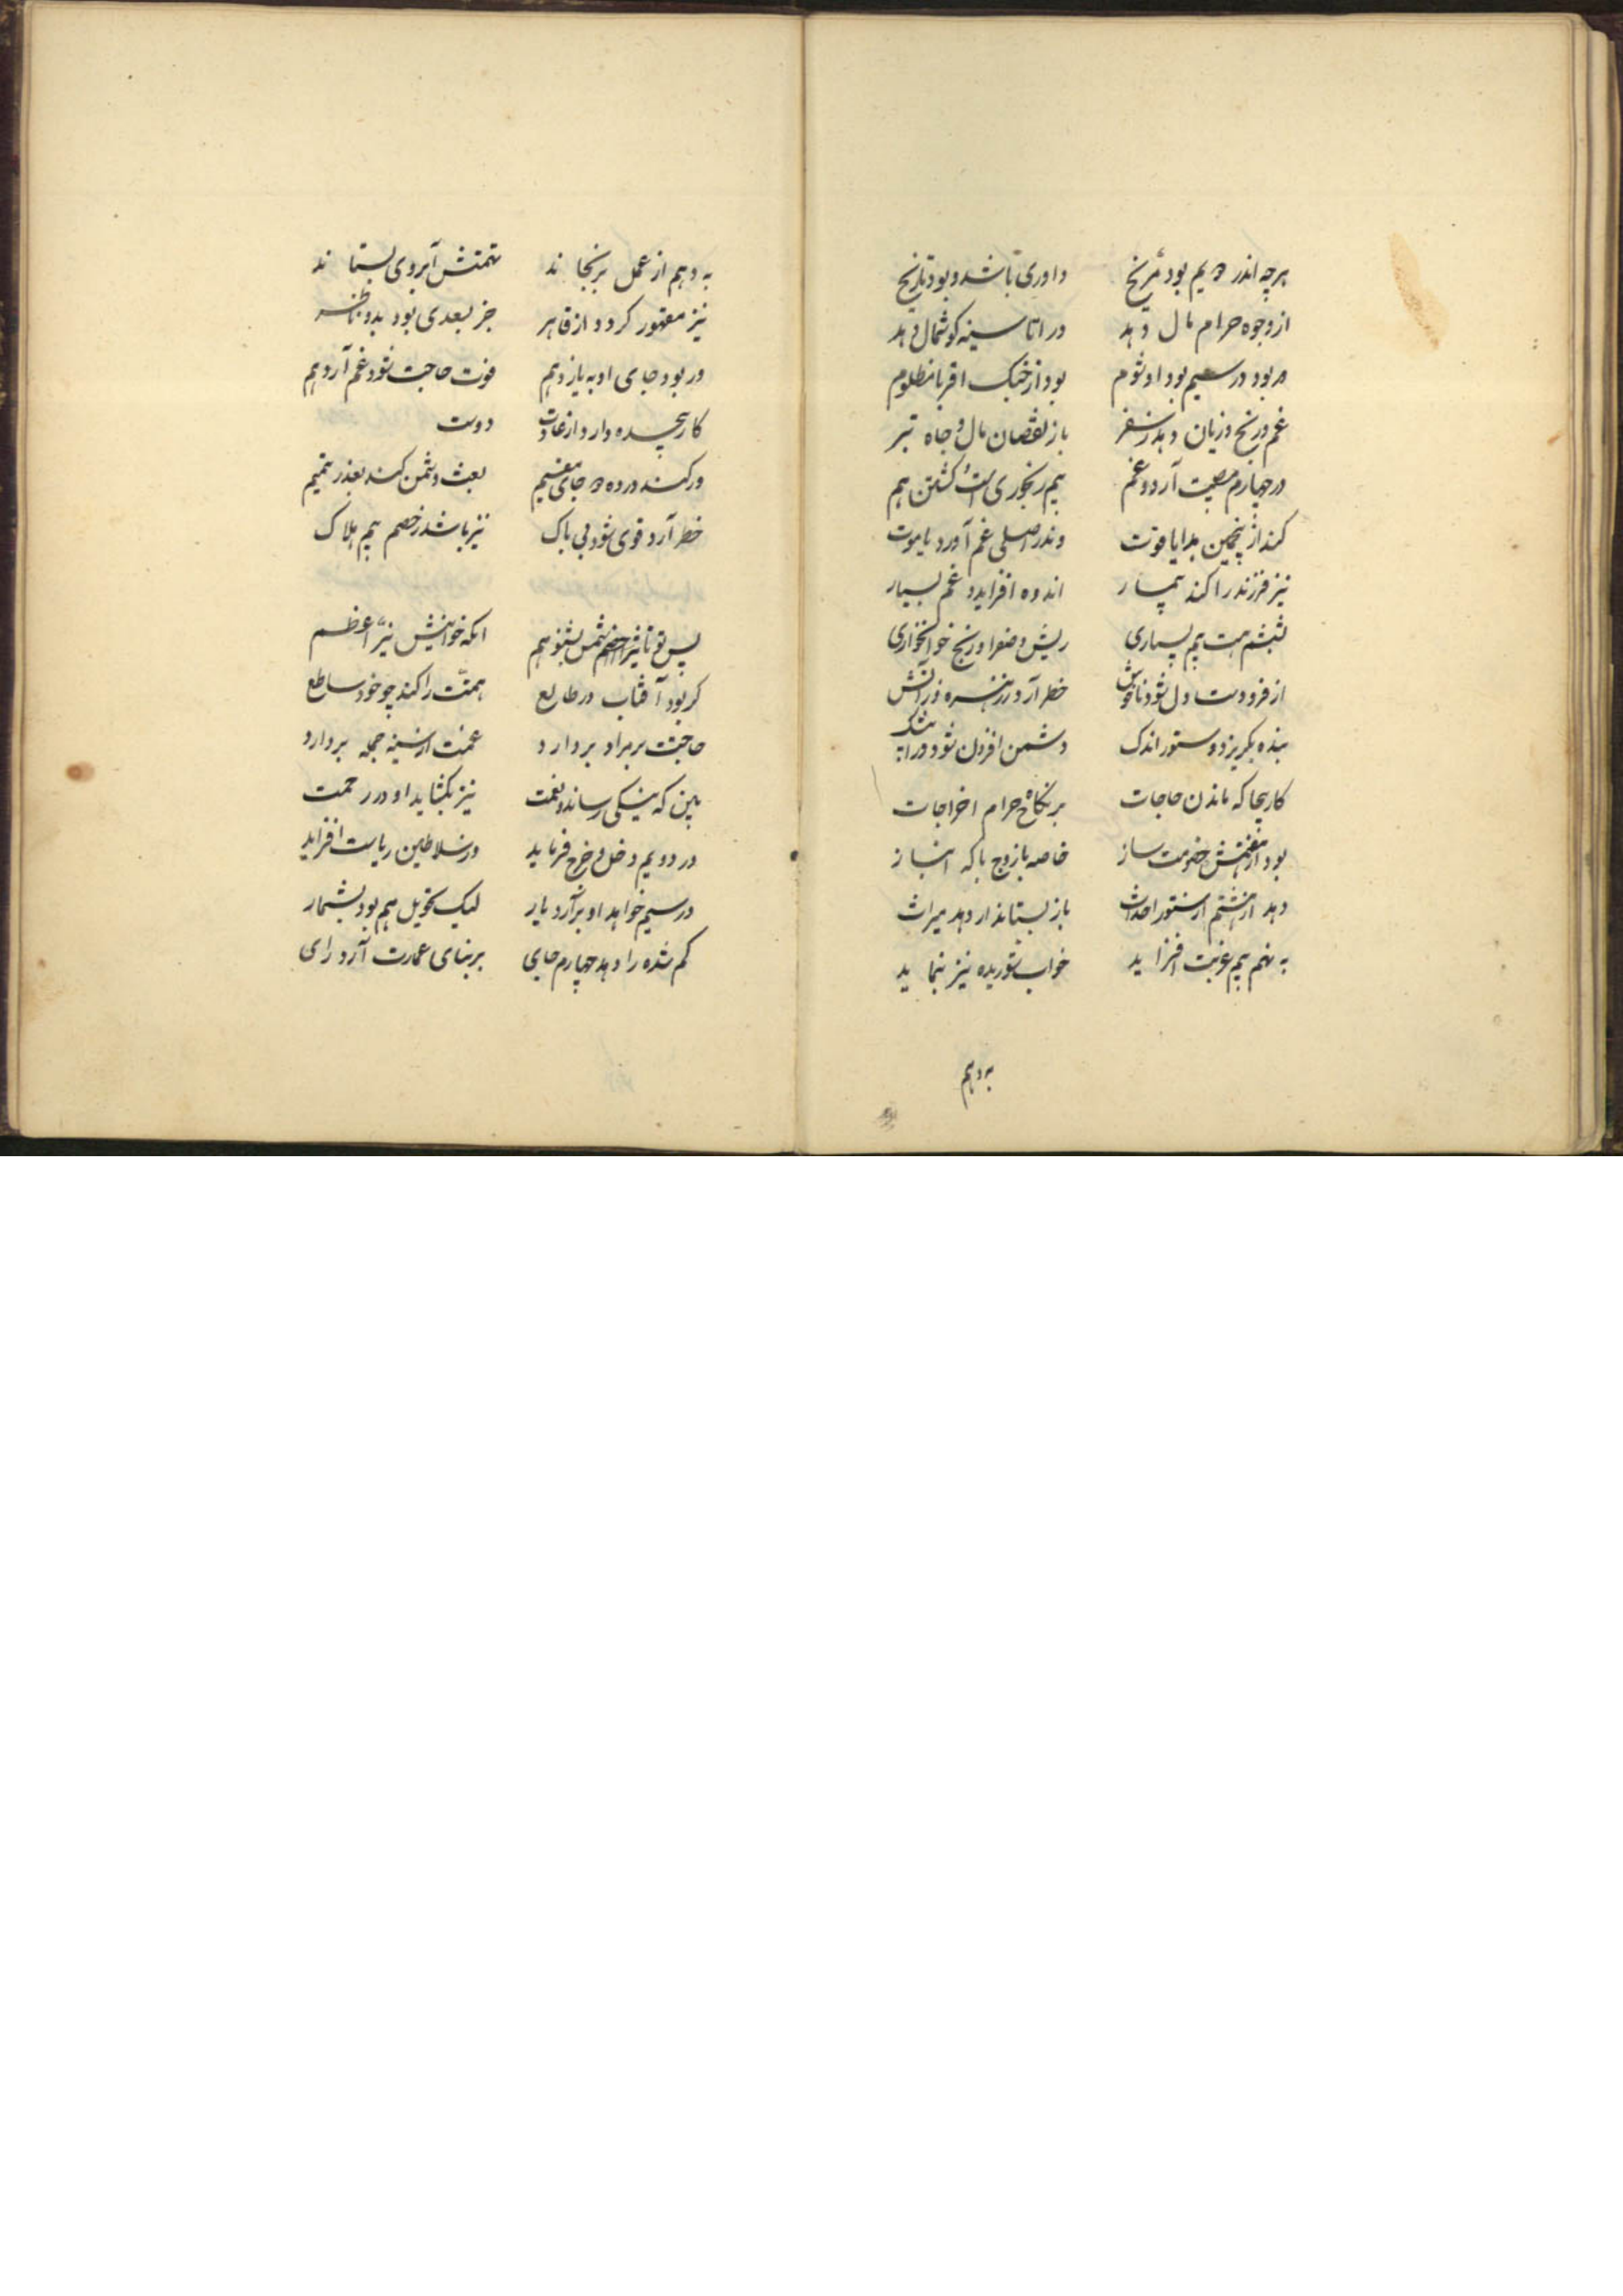 هرچه اندر دویم بود مریخ داوری باشد و بود تاریخ
از وجوه حرام مال دهد در اتا سینه گوشمال دهد
ور بود در سیم بود او شوم بود از جنگ اقربا مظلوم
غم و رنج و زیان دهد ز سفر باز نقصان مال و جاه تبر
در چهارم مصیبت آرد و غم بیم رنجوری است کشتن هم
کند از پنجمین هدایا فوت وندر اصلی غم آورد یا موت
نیز فرزند را کند بیمار اندوه افزاید و غم بسیار
ششم هست بیم بیماری ریش و صفرا و رنج خونخواری
از فرودست دل شود ناخوش خطر آرد ز زهره وز آتش
بنده بگریزد و ستور اندک دشمن افزون شود ورا بیشک
کار بیجا که ماندن حاجات بر نکاح حرام اخراجات
بود از هفتمش خصومت ساز خاصه با زوج با که انباز
دهد از هشتم از ستور احداث باز بستاند ار دهد میراث
به نهم بیم غربت افزاید خواب شوریده نیز بنماید
به دهم
به دهم از عمل برنجاند تهمتش آبروی بستاند
نیز مقهور گردد از قاهر جز بعدی بود بدو ناظر
ور بود جای او به یازدهم فوت حاجت شود غم آرد هم
کار پیچیده دارد از عادت دوست
ور کند در ده دو جای مقیم بعث دشمن کند بعذر تمیم
خطر آرد قوی شود بی باک نیز باشد ز خصم بیم هلاک
پس تو تاثیر شمس بشنو هم انکه خوانیش نیّر اعظم
گر بود آفتاب در طالع همتت را کند چو خود ساطع
حاجتت بر مراد بردارد غمت از سینه جمله بردارد
بین که نیکی رساند و نعمت نیز بگشاید او در رحمت
در دویم دخل و خرج فرماید وز سلاطین ریاست افزاید
در سیم خواهد او برآرد یار لیک تحویل هم بود بشمار
گم شده را دهد چهارم جای بر بنای عمارت آرد رای